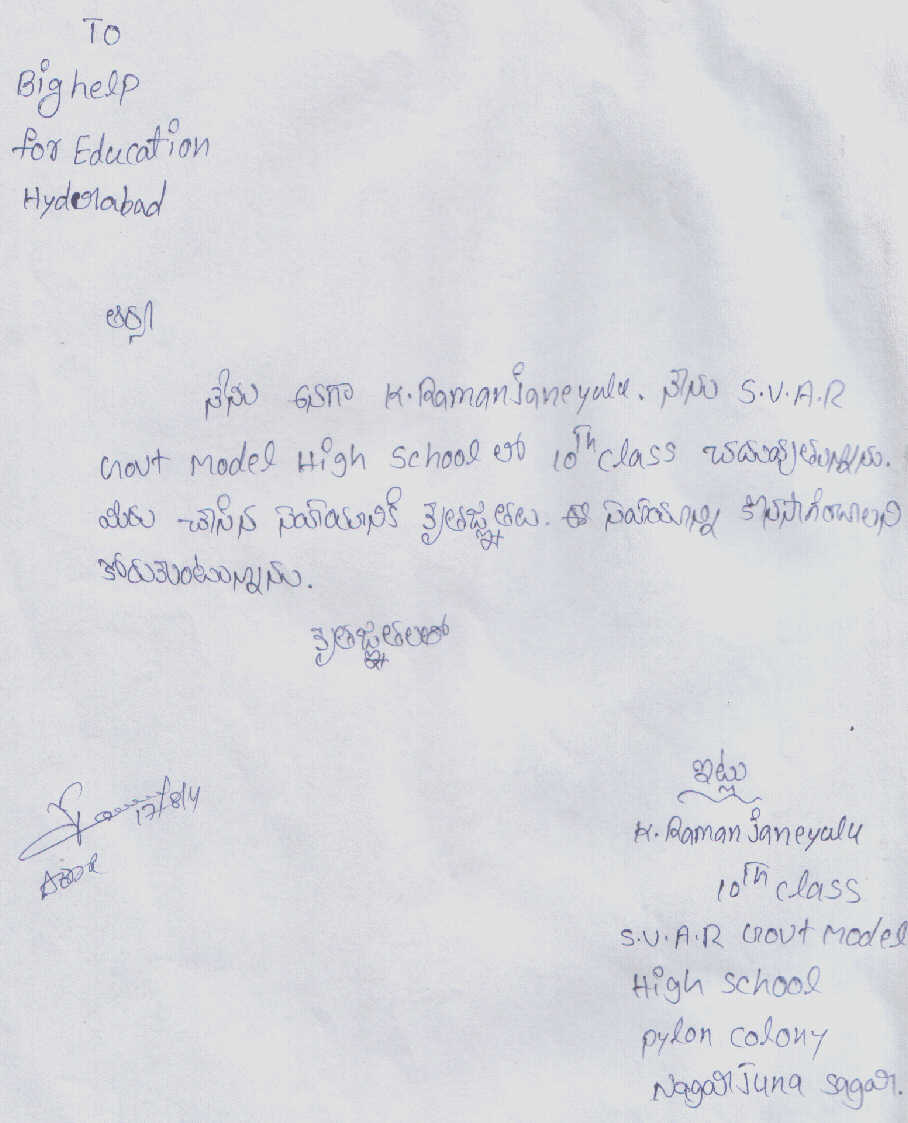 To
Big help
for Education
Hyderabad
ఆర్యా
నేను అనగా K. Ramanjaneyulu. నేను S.V.A.R
Govt Model High School లో 10th class చదువుతున్నాను.
మీరు చేసిన సహాయానికి కృతజ్ఞతలు. ఈ సహాయాన్ని కొనసాగించాలని
కోరుకుంటున్నాను.
కృతజ్ఞతలతో
17/8/4
ఇట్లు
K. Ramanjaneyulu
10th class
S.V.A.R Govt Model
High School
pylon colony
Nagarjuna sagar.